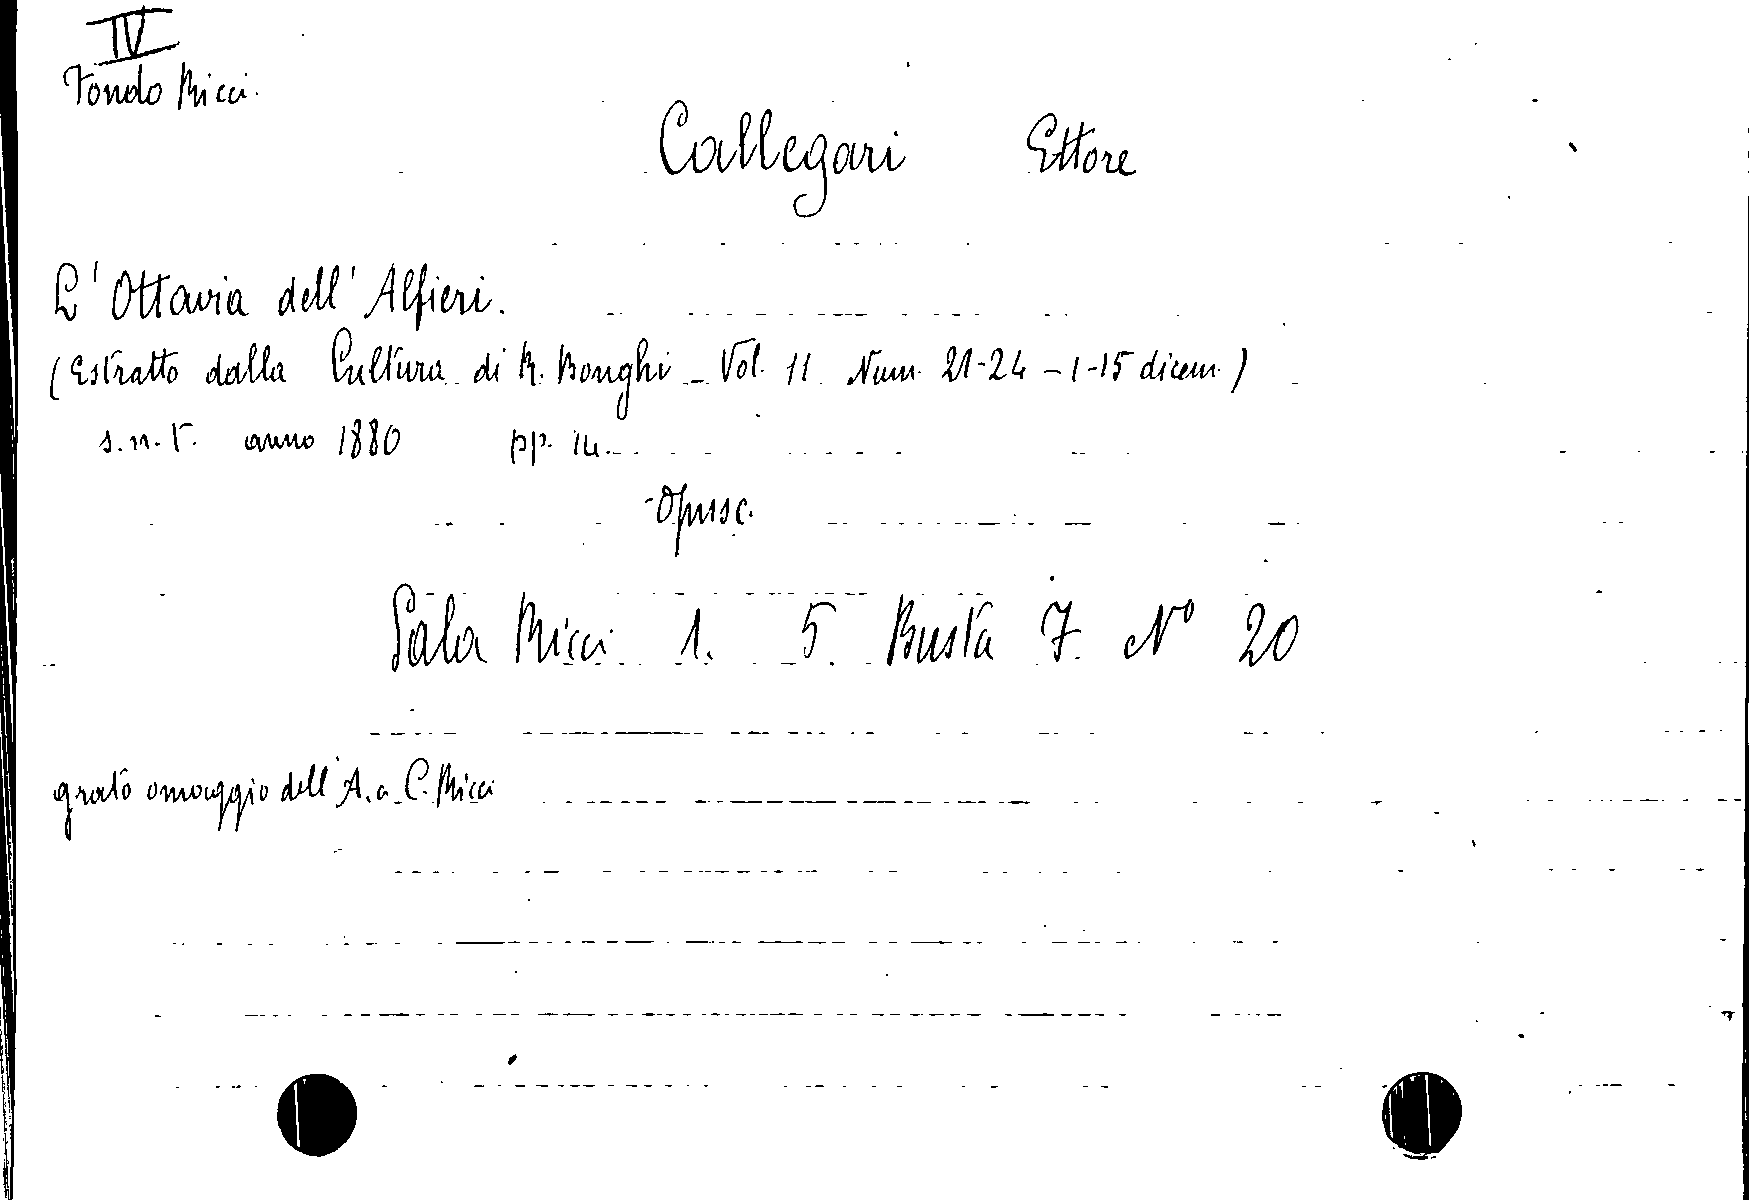 IV
Fondo Ricci.
Callegari Ettore
L'Ottavia dell'Alfieri.
(Estratto dalla Cultura di R. Bonghi - Vol. 11 Num. 21-24 - 1-15 dicem.)
s.n.t. anno 1880 pp. 14.
Opusc.
Sala Ricci 1. 5. Busta 7 N° 20
grato omaggio dell'A. a C. Ricci